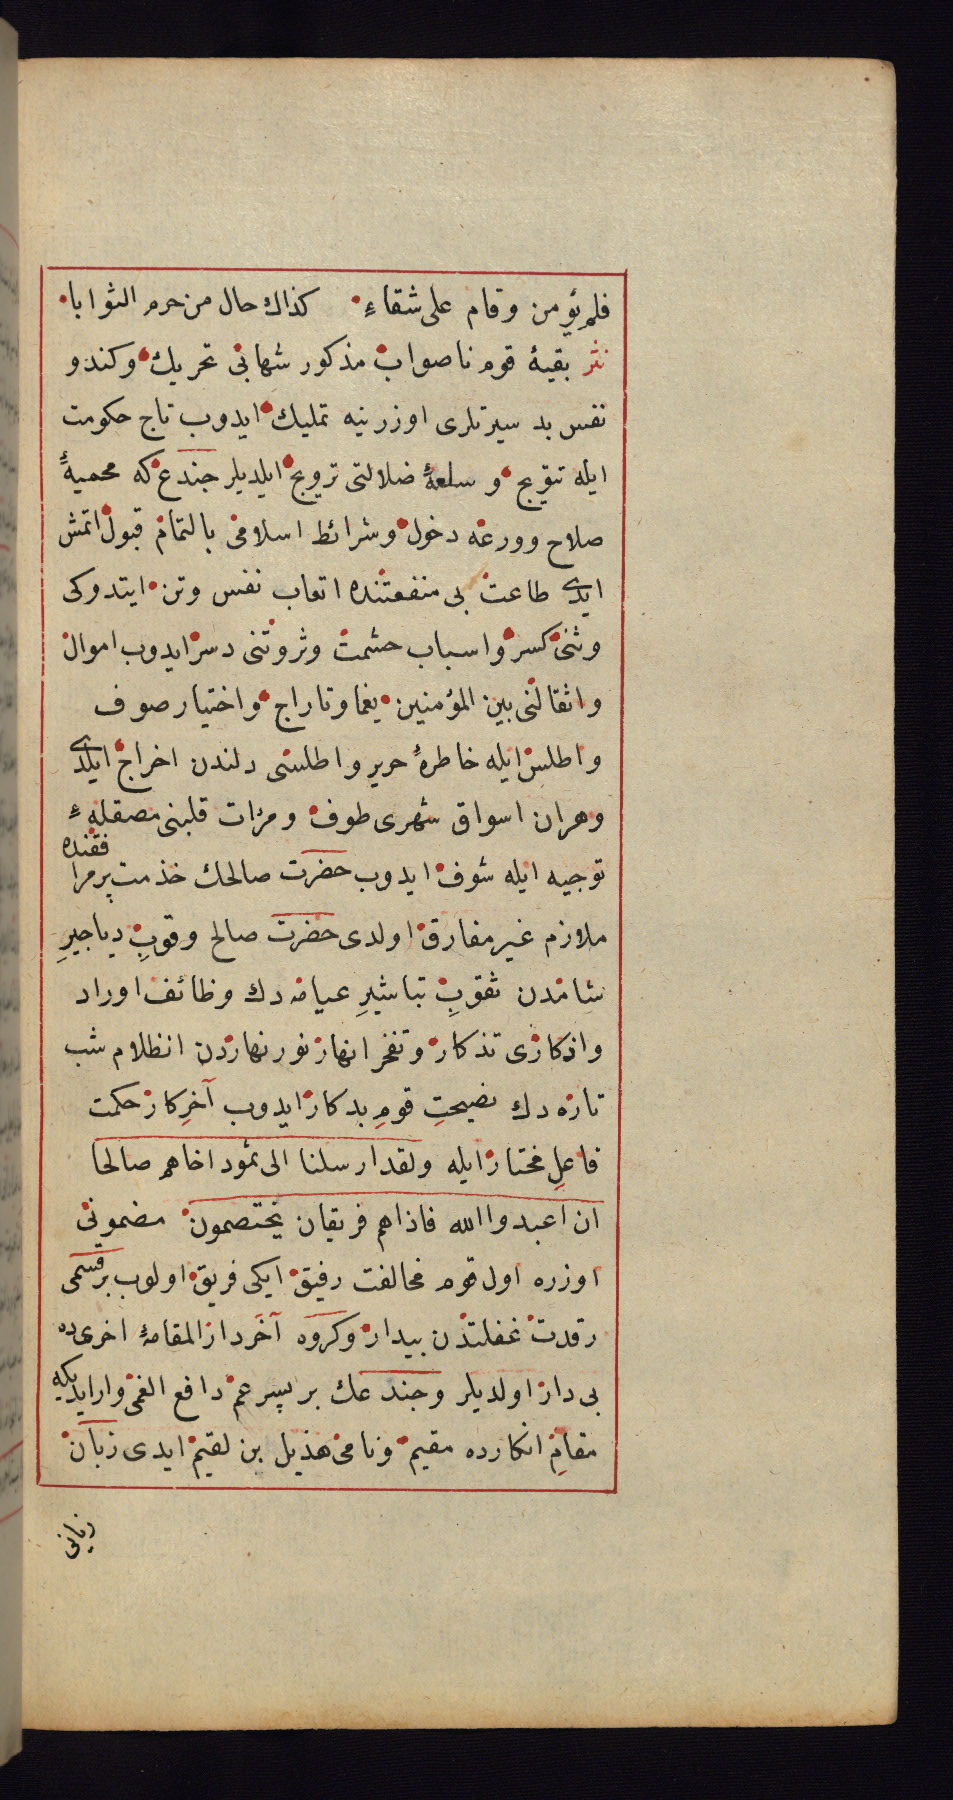 فلم يؤمن وقام على شقاء كذاك حال من حرم الثوابا
نثر بقيۀ قوم ناصواب مذكور شهابى تحريك وكندو
نفس بد سيرتلرى اوزرينه تمليك ايدوب تاج حكومت
ايله تتويج و سلعۀ ضلالتى ترويج ايلديلر جندع كه محميۀ
صلاح وورعه دخول وشرائط اسلامى بالتمام قبول اتمش
ايدى طاعت بى منفعتنده اتعاب نفس وتن ايتدوكى
وثنى كسر واسباب حشمت وثروتنى دسر ايدوب اموال
واثقالنى بين المؤمنين يغما وتاراج واختيار صوف
واطلس ايله خاطرۀ حرير واطلسى دلندن اخراج ايلدى
وهران اسواق شهرى طوف ومرٔات قلبنى مصقلۀ
توجيه ايله شوف ايدوب حضرت صالحك خذمت پرمرافقنده
ملازم غير مفارق اولدى حضرت صالح وقوب دياجير
شامدن ثقوب تباشير عيانه دك وظائف اوراد
واذكارى تذكار وتفجر انهار نور نهاردن انظلام شب
تاره دك نصيحت قوم بدكار ايدوب آخر كار حكمت
فاعل مختار ايله ولقد ارسلنا الى ثمود اخاهم صالحا
ان اعبدوا الله فاذاهم فريقان يختصمون مضمونى
اوزره اول قوم مخالفت رفيق ايكى فريق اولوب برقسمى
رقدت غفلتدن بيدار وكروه آخر دار المقامۀ اخرىده
بى دار اولديلر وجندعك بر پسر عم دافع الغمى وارايديكه
مقام انكارده مقيم ونامى هذيل بن لقيم ايدى زبان
زبانى